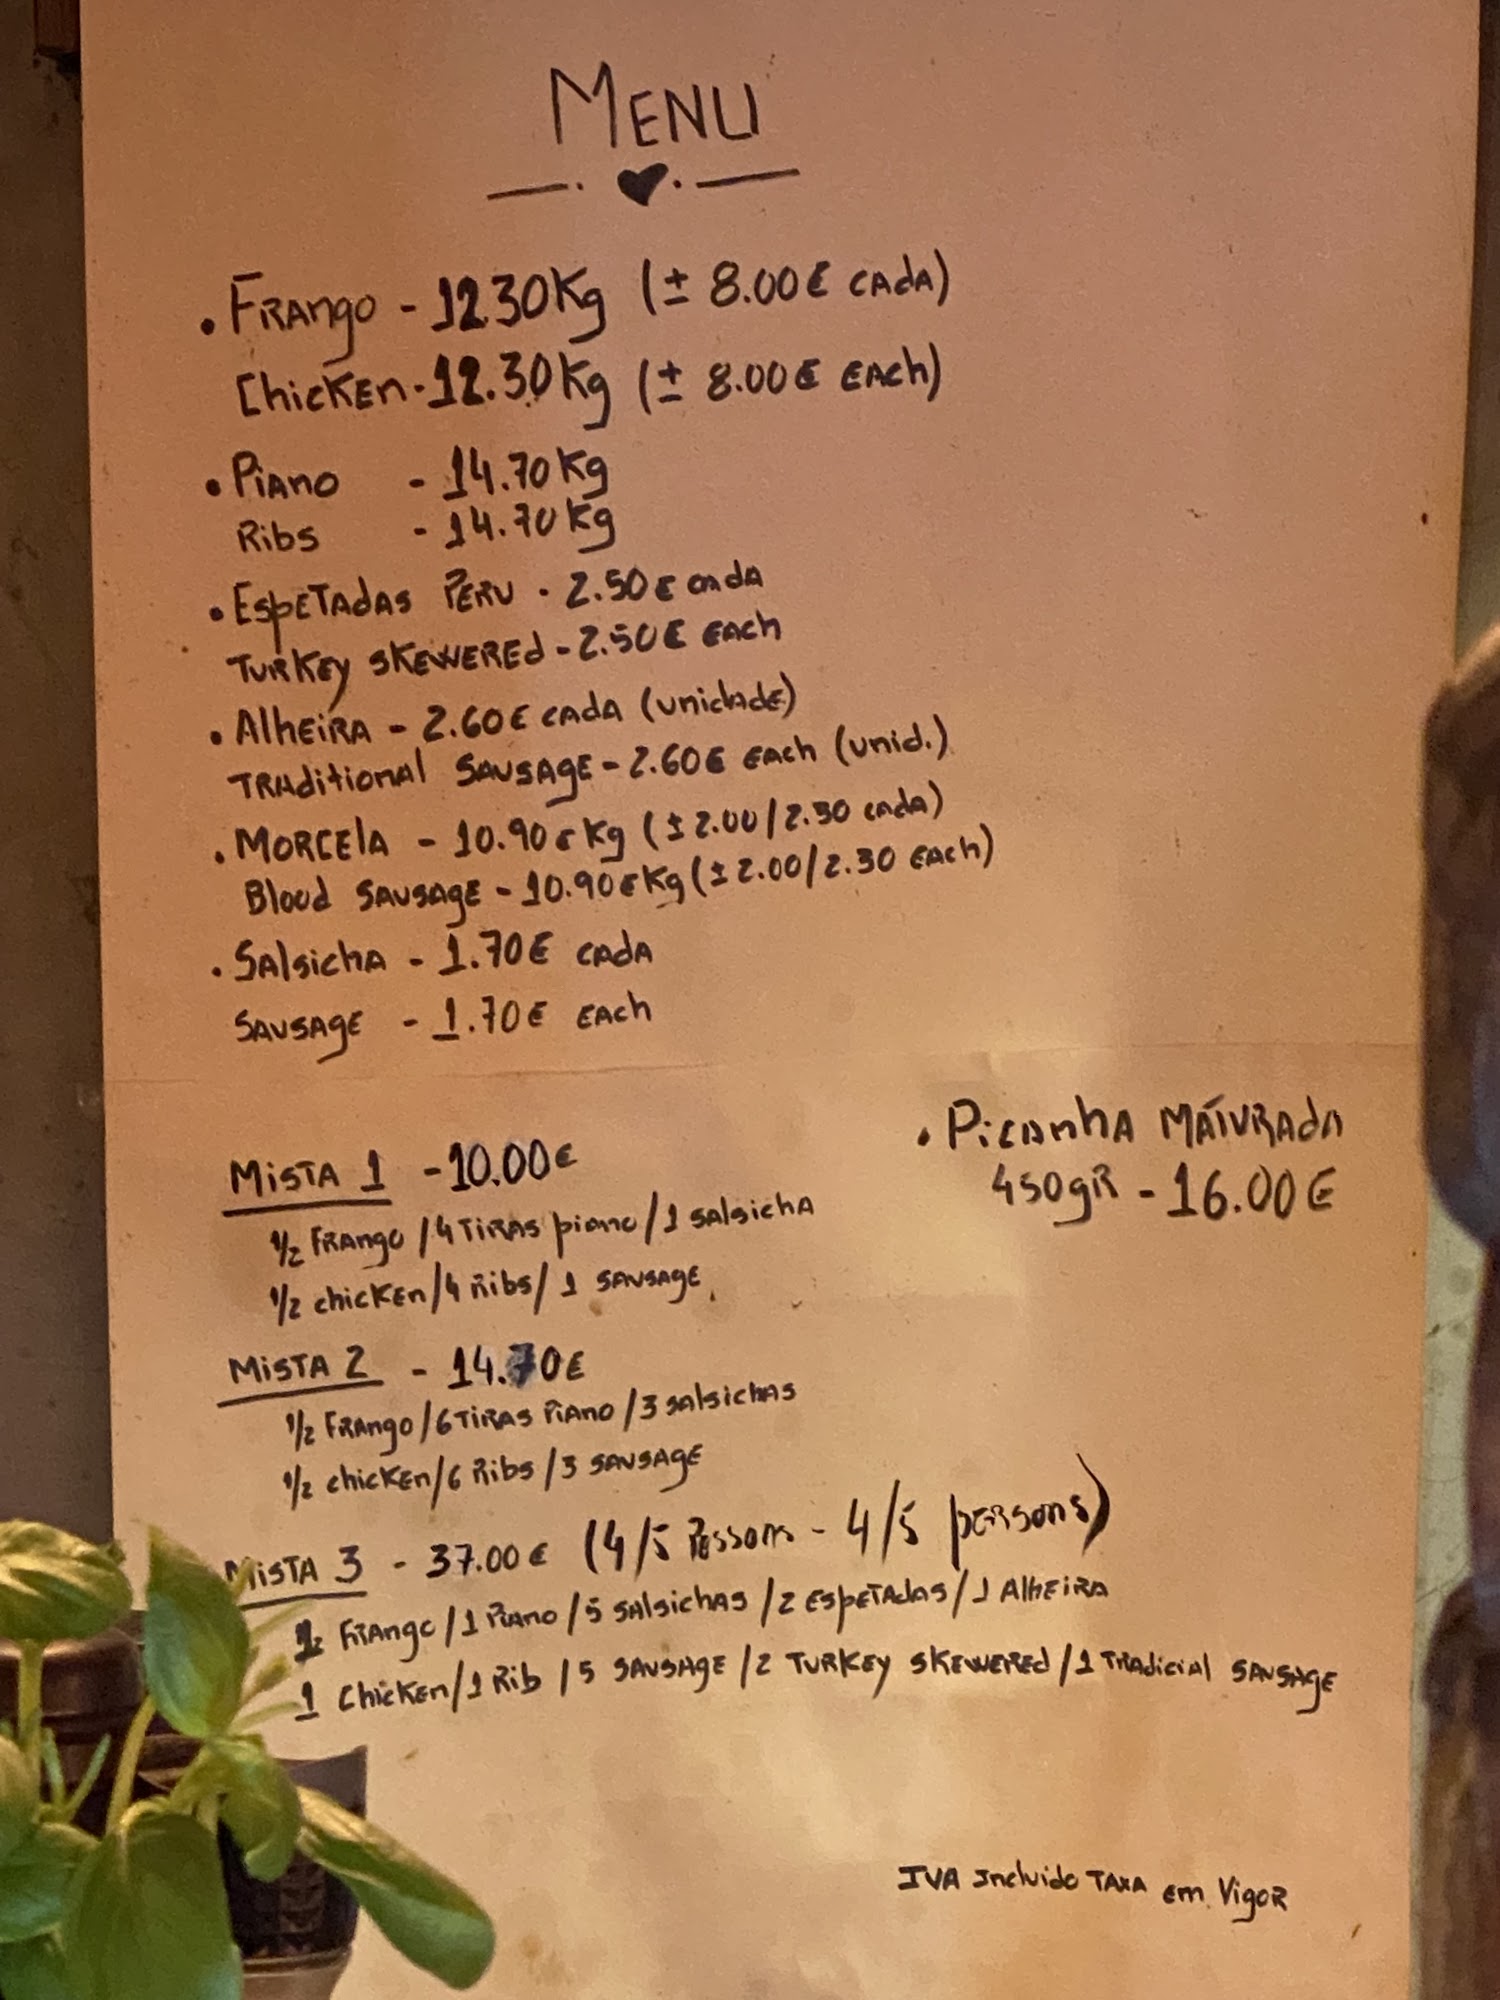 MENU
• FRANGO - 12.30Kg (± 8.00€ CADA)
ChicKEN - 12.30Kg (± 8.00€ EACh)
• PiANO - 14.70Kg
Ribs - 14.70Kg
• ESPETADAS PERU - 2.50€ CADA
TURKEY SKEWEREd - 2.50€ EACh
• AlhEiRA - 2.60€ CADA (unidade)
TRAditional SAUSAgE - 2.60€ EACh (unid.)
• MORCElA - 10.90€ Kg (± 2.00/2.30 CADA)
Blood SAUSAgE - 10.90€ Kg (± 2.00/2.30 EACh)
• SAlsichA - 1.70€ CADA
SAUSAgE - 1.70€ EACh
• PicanhA MATURADA
450gR - 16.00€
MiSTA 1 - 10.00€
1/2 FRANgo / 4 TiRAS piano / 1 SAlsichA
1/2 chicKEn / 4 Ribs / 1 SAUSAgE
MiSTA 2 - 14.70€
1/2 FRANgo / 6 TiRAS PiANO / 3 SAlsichAS
1/2 chicKEn / 6 Ribs / 3 SAUSAgE
MiSTA 3 - 37.00€ (4/5 PESSOAS - 4/5 pERSONS)
1 FRANgo / 1 PiANO / 5 SAlsichAS / 2 ESpETAdAS / 1 AlhEiRA
1 ChicKEn / 1 Rib / 5 SAUSAgE / 2 TURKEY SKEWEREd / 1 TRAdiciAl SAUSAgE
IVA Incluido TAXA Em VigOR